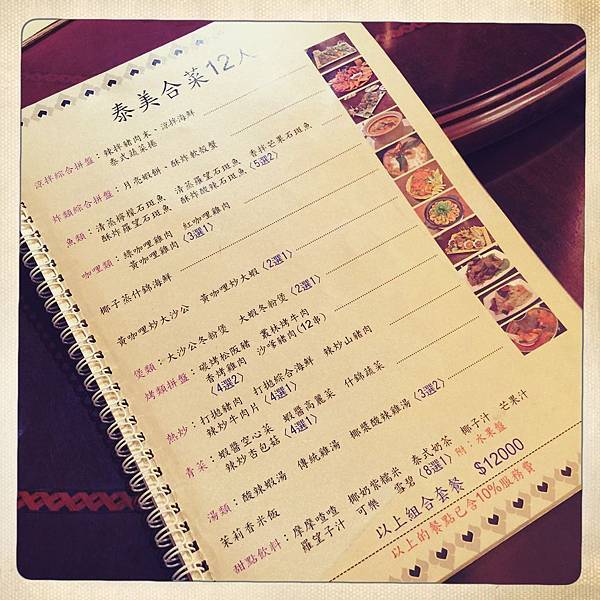 泰美合菜12人
涼拌綜合拼盤：辣拌豬肉末、涼拌海鮮
泰式蔬菜捲
炸類綜合拼盤：月亮蝦餅、酥炸軟殼蟹
魚類：清蒸檸檬石斑魚 清蒸羅望石斑魚 香拌芒果石斑魚
酥炸羅望石斑魚 酥炸酸辣石斑魚〈5選2〉
咖哩類：綠咖哩雞肉 紅咖哩雞肉
黃咖哩雞肉〈3選1〉
椰子蒸什錦海鮮
黃咖哩炒大沙公 黃咖哩炒大蝦〈2選1〉
煲類：大沙公冬粉煲 大蝦冬粉煲〈2選1〉
烤類拼盤：碳烤松阪豬 叢林烤牛肉
香烤雞肉 沙嗲豬肉(12串)
〈4選2〉
熱炒：打拋豬肉 打拋綜合海鮮 辣炒山豬肉
辣炒牛肉片〈4選1〉
青菜：蝦醬空心菜 蝦醬高麗菜 什錦蔬菜
辣炒杏包菇〈4選1〉
湯類：酸辣蝦湯 傳統雞湯 椰漿酸辣雞湯〈3選2〉
茉莉香米飯
甜點飲料：摩摩喳喳 椰奶紫糯米 泰式奶茶 椰子汁 芒果汁
羅望子汁 可樂 雪碧〈8選1〉附：水果盤
以上組合套餐 $12000
以上的餐點已含10%服務費